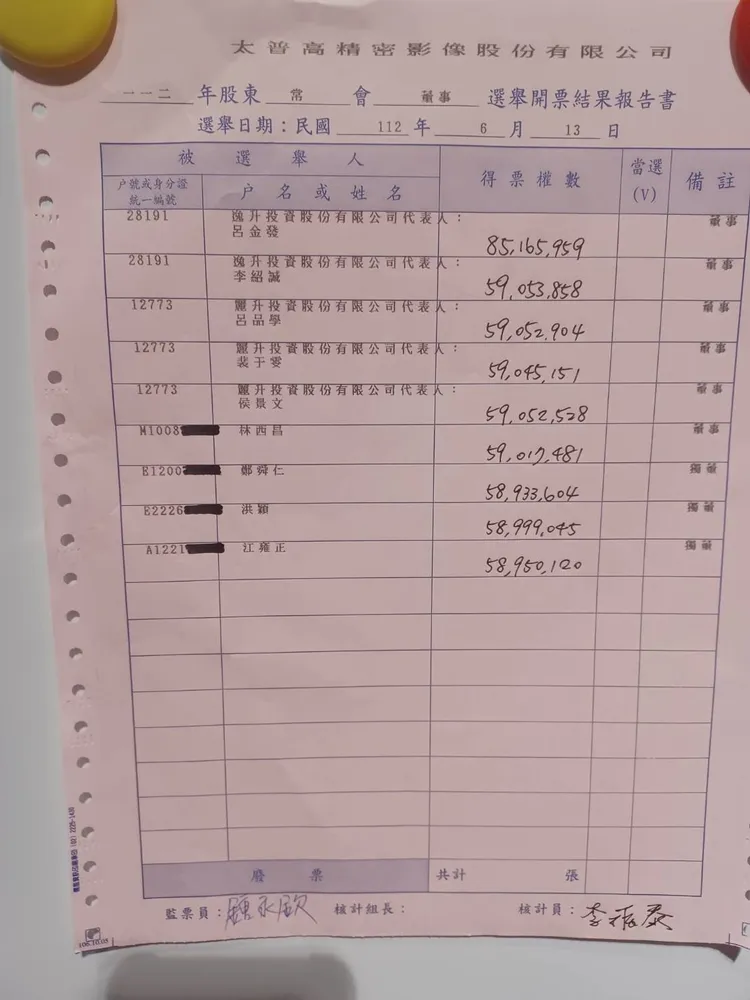 太普高精密影像股份有限公司
一一二 年股東 常 會 董事 選舉開票結果報告書
選舉日期：民國 112 年 6 月 13 日
被選舉人 得票權數 當選(V) 備註
户號或身分證統一編號 户名或姓名
28191 逸升投資股份有限公司代表人：
呂金發 85,165,959
28191 逸升投資股份有限公司代表人：
李紹誠 59,053,858
12773 麗升投資股份有限公司代表人：
呂品學 59,052,904
12773 麗升投資股份有限公司代表人：
裴于雯 59,045,151
12773 麗升投資股份有限公司代表人：
侯景文 59,052,528
M1008 林西昌 59,017,481
E1200 鄭舜仁 58,933,604
E2226 洪穎 58,999,045
A1221 江雍正 58,950,120
廢票 共計 張
監票員：鍾永欽 核計組長： 核計員：李振泰